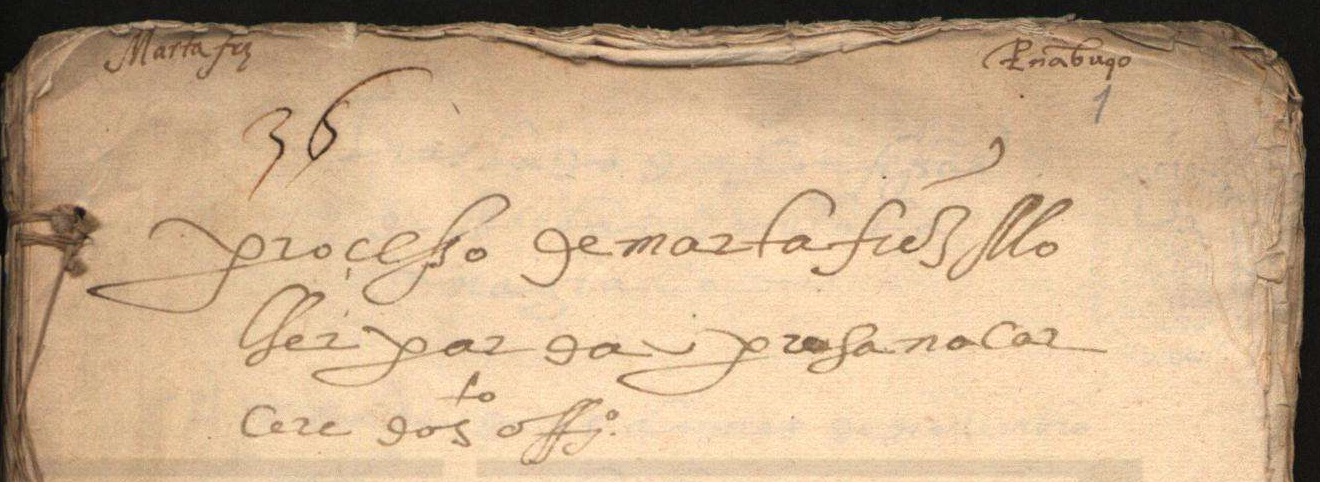 Marta frz
Pernãbuqo
1
36
processo de marta frz̃ mo
lher parda presa no car
cere do sto offiº.